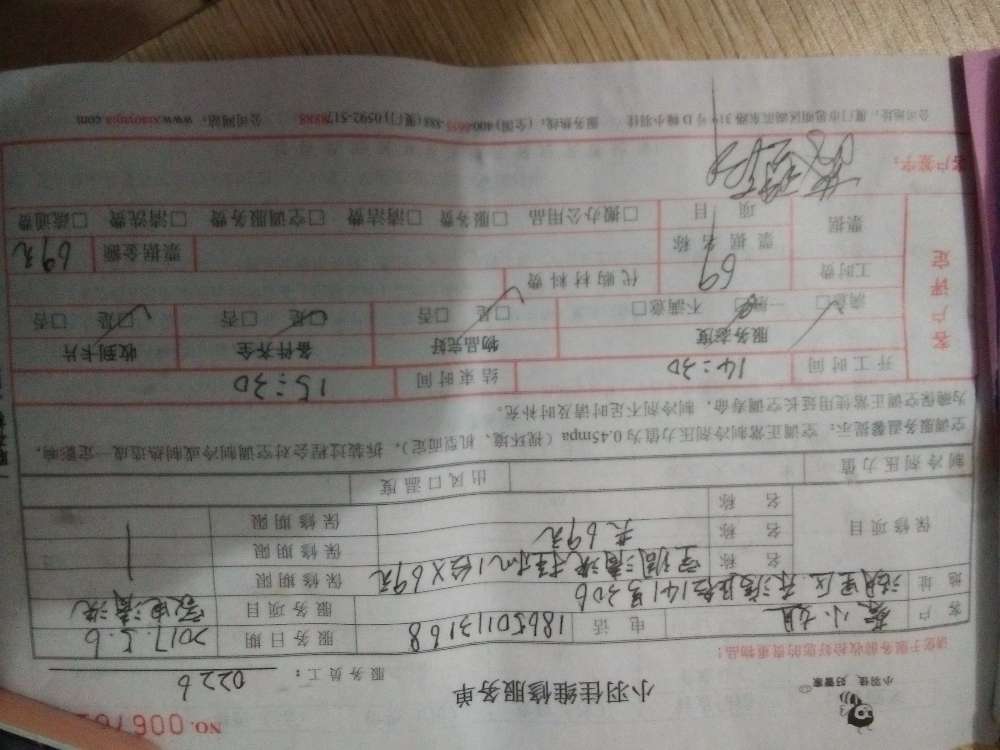 NO. 00676
小羽佳 好管家
小羽佳维修服务单
服务员工： 0226
请您于服务前收拾好您的贵重物品！
客户 小姐 电话 18650113168 服务日期 2017.5.6
地址 湖里区 141号306 服务项目 家电清洗
保修项目 名称 空调清洗挂机1台X69元 保修期限
名称 共69元 保修期限
名称 保修期限
制冷剂压力值 出风口温度
空调服务温馨提示：空调正常制冷剂压力值为0.45mpa（视环境、机型而定），拆装过程会对空调制冷或制热造成一定影响，
为确保空调正常使用延长空调寿命，制冷剂不足时请及时补充。
客户评定
开工时间 14:30 结束时间 15:30
服务态度 物品完好 备件齐全 收到卡片
满意□ 一般□ 不满意□ □是 □否 □是 □否 □是 □否
工时费 69 代购材料费
票据 票据名称 票据金额 69元
项目 □搬办公用品 □服务费 □清洁费 □空调服务费 □清洗费 □疏通费
客户签字：
公司地址：厦门市思明区湖滨东路319号D幢小羽佳 服务热线：(全国)400-6655-388(厦门)0592-5178888 公司网站：www.xiaoyujia.com